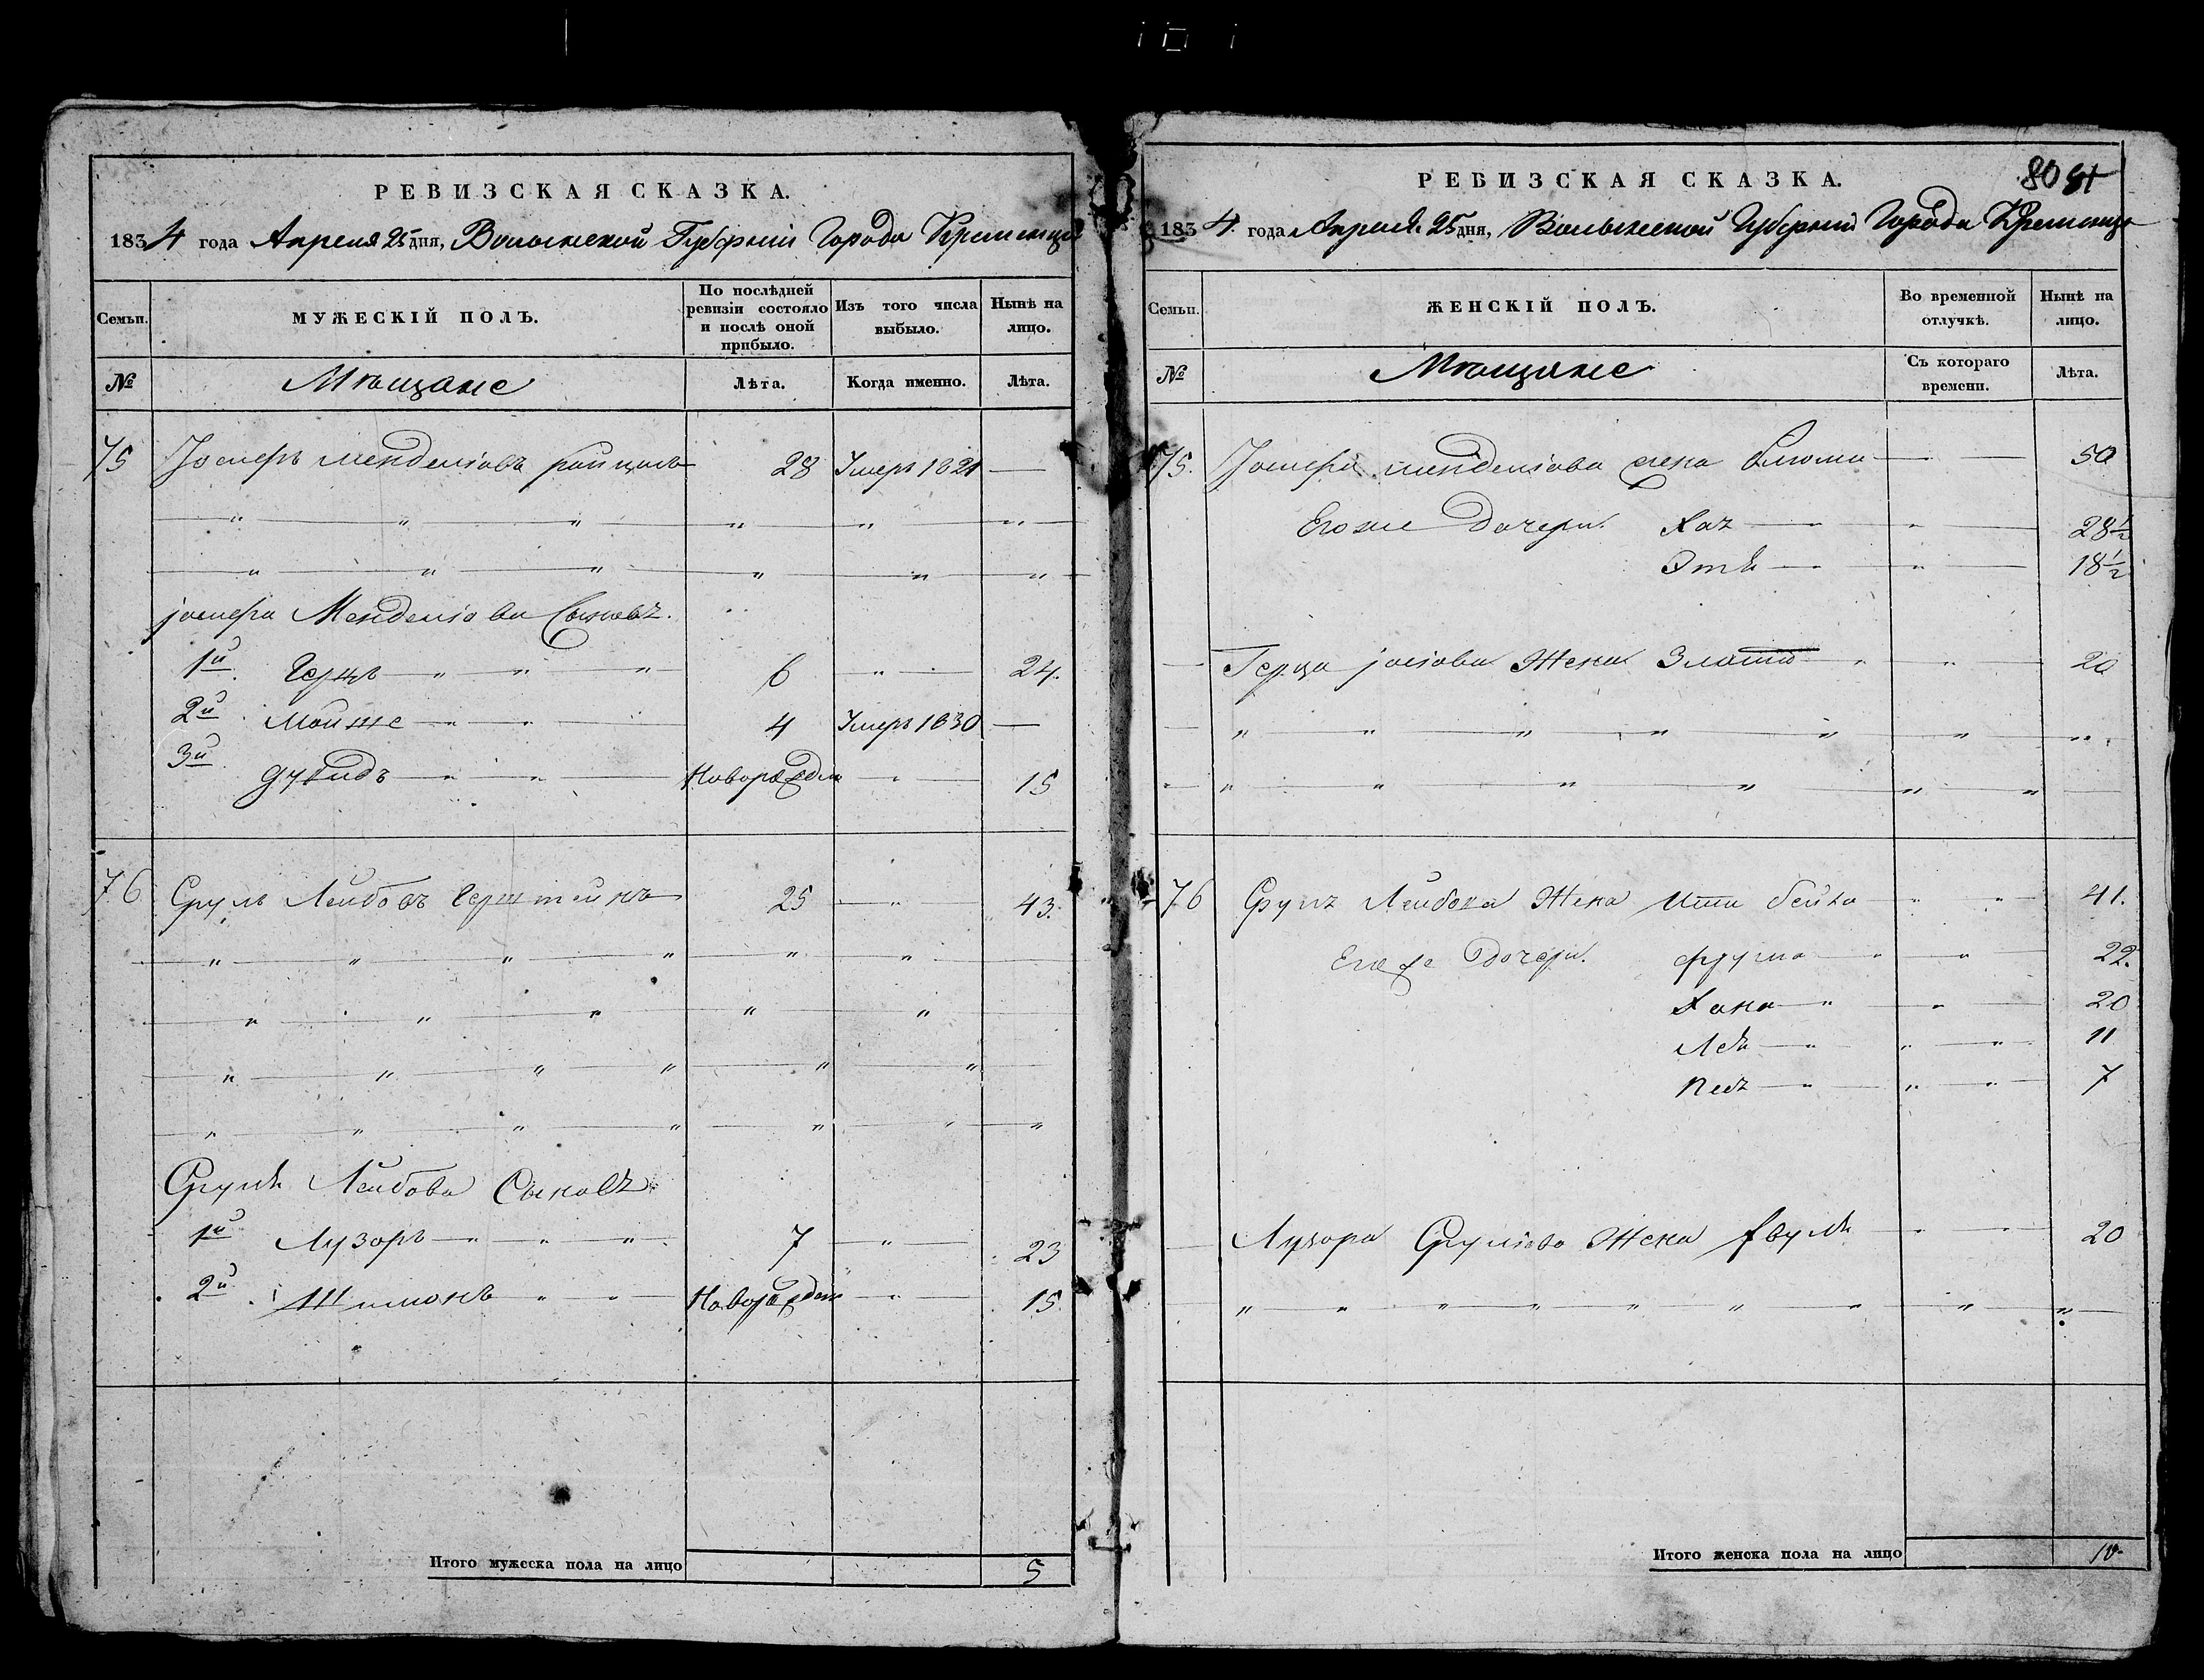 РЕВИЗСКАЯ СКАЗКА.
1834 года Апреля 25 дня, Волынской Губернiи Города Кременца
Семьи. МУЖЕСКІЙ ПОЛЪ. По послѣдней ревизіи состояло и послѣ оной прибыло. Изъ того числа выбыло. Нынѣ на лицо.
№ Мѣщане Лѣта. Когда именно. Лѣта.
75 Менделiовъ 28 Умеръ 1821 —
Менделiова Сыновѣ.
1й Герцъ 6 24.
2й Мойше 4 Умеръ 1830 —
3й Новорожден 15
76 Сруль Лейбовъ Герштейнъ 25 43.
Сруля Лейбова Сыновѣ
1й Лузоръ 7 23
2й Шимонъ Новорожден 15
Итого мужеска пола на лицо 5
РЕВИЗСКАЯ СКАЗКА.
80 81
1834 года Апреля 25 дня, Волынской Губернiи Города Кременца
Семьи. ЖЕНСКІЙ ПОЛЪ. Во временной отлучкѣ. Нынѣ на лицо.
№ Мѣщане Съ котораго времени. Лѣта.
75. Менделiова жена 50
Егоже Дочери Хая 28½
Этя 18½
Герца Жена Злата 20
76 Сруля Лейбова Жена Ита Бейла 41.
Егоже Дочери фрума 22.
Хана 20
Лея 11
7
Лузора Срулiова Жена 20
Итого женска пола на лицо 10.